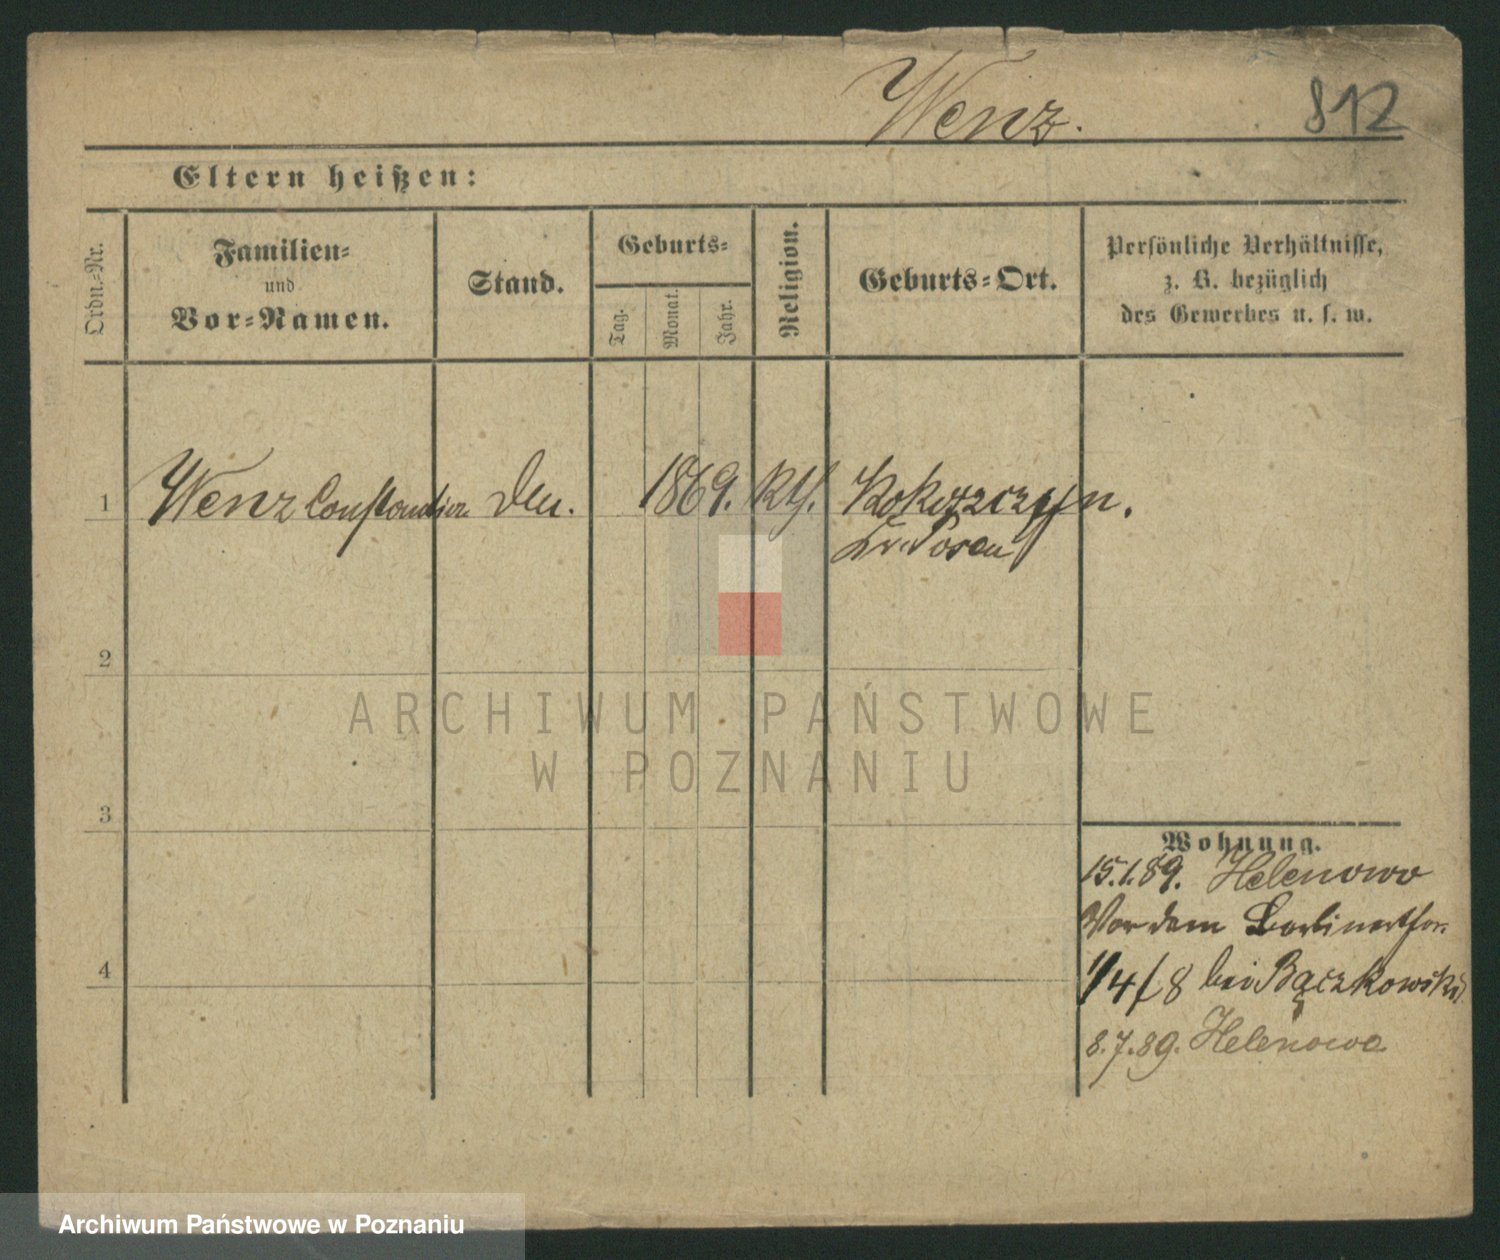 Wenz.
812
Eltern heißen:
Ordn.-Nr.
Familien-
und
Vor-Namen.
Stand.
Geburts-
Tag.
Monat.
Jahr.
Religion.
Geburts-Ort.
Persönliche Verhältnisse,
z. B. bezüglich
des Gewerbes u. s. w.
1
Wenz
1869.
Kr. Posen
2
ARCHIWUM PAŃSTWOWE
W POZNANIU
3
Wohnung.
15.1.89. Helenowo
Vor dem Berlinerthor.
4
bei Bączkowski
8.7.89. Helenowo
Archiwum Państwowe w Poznaniu